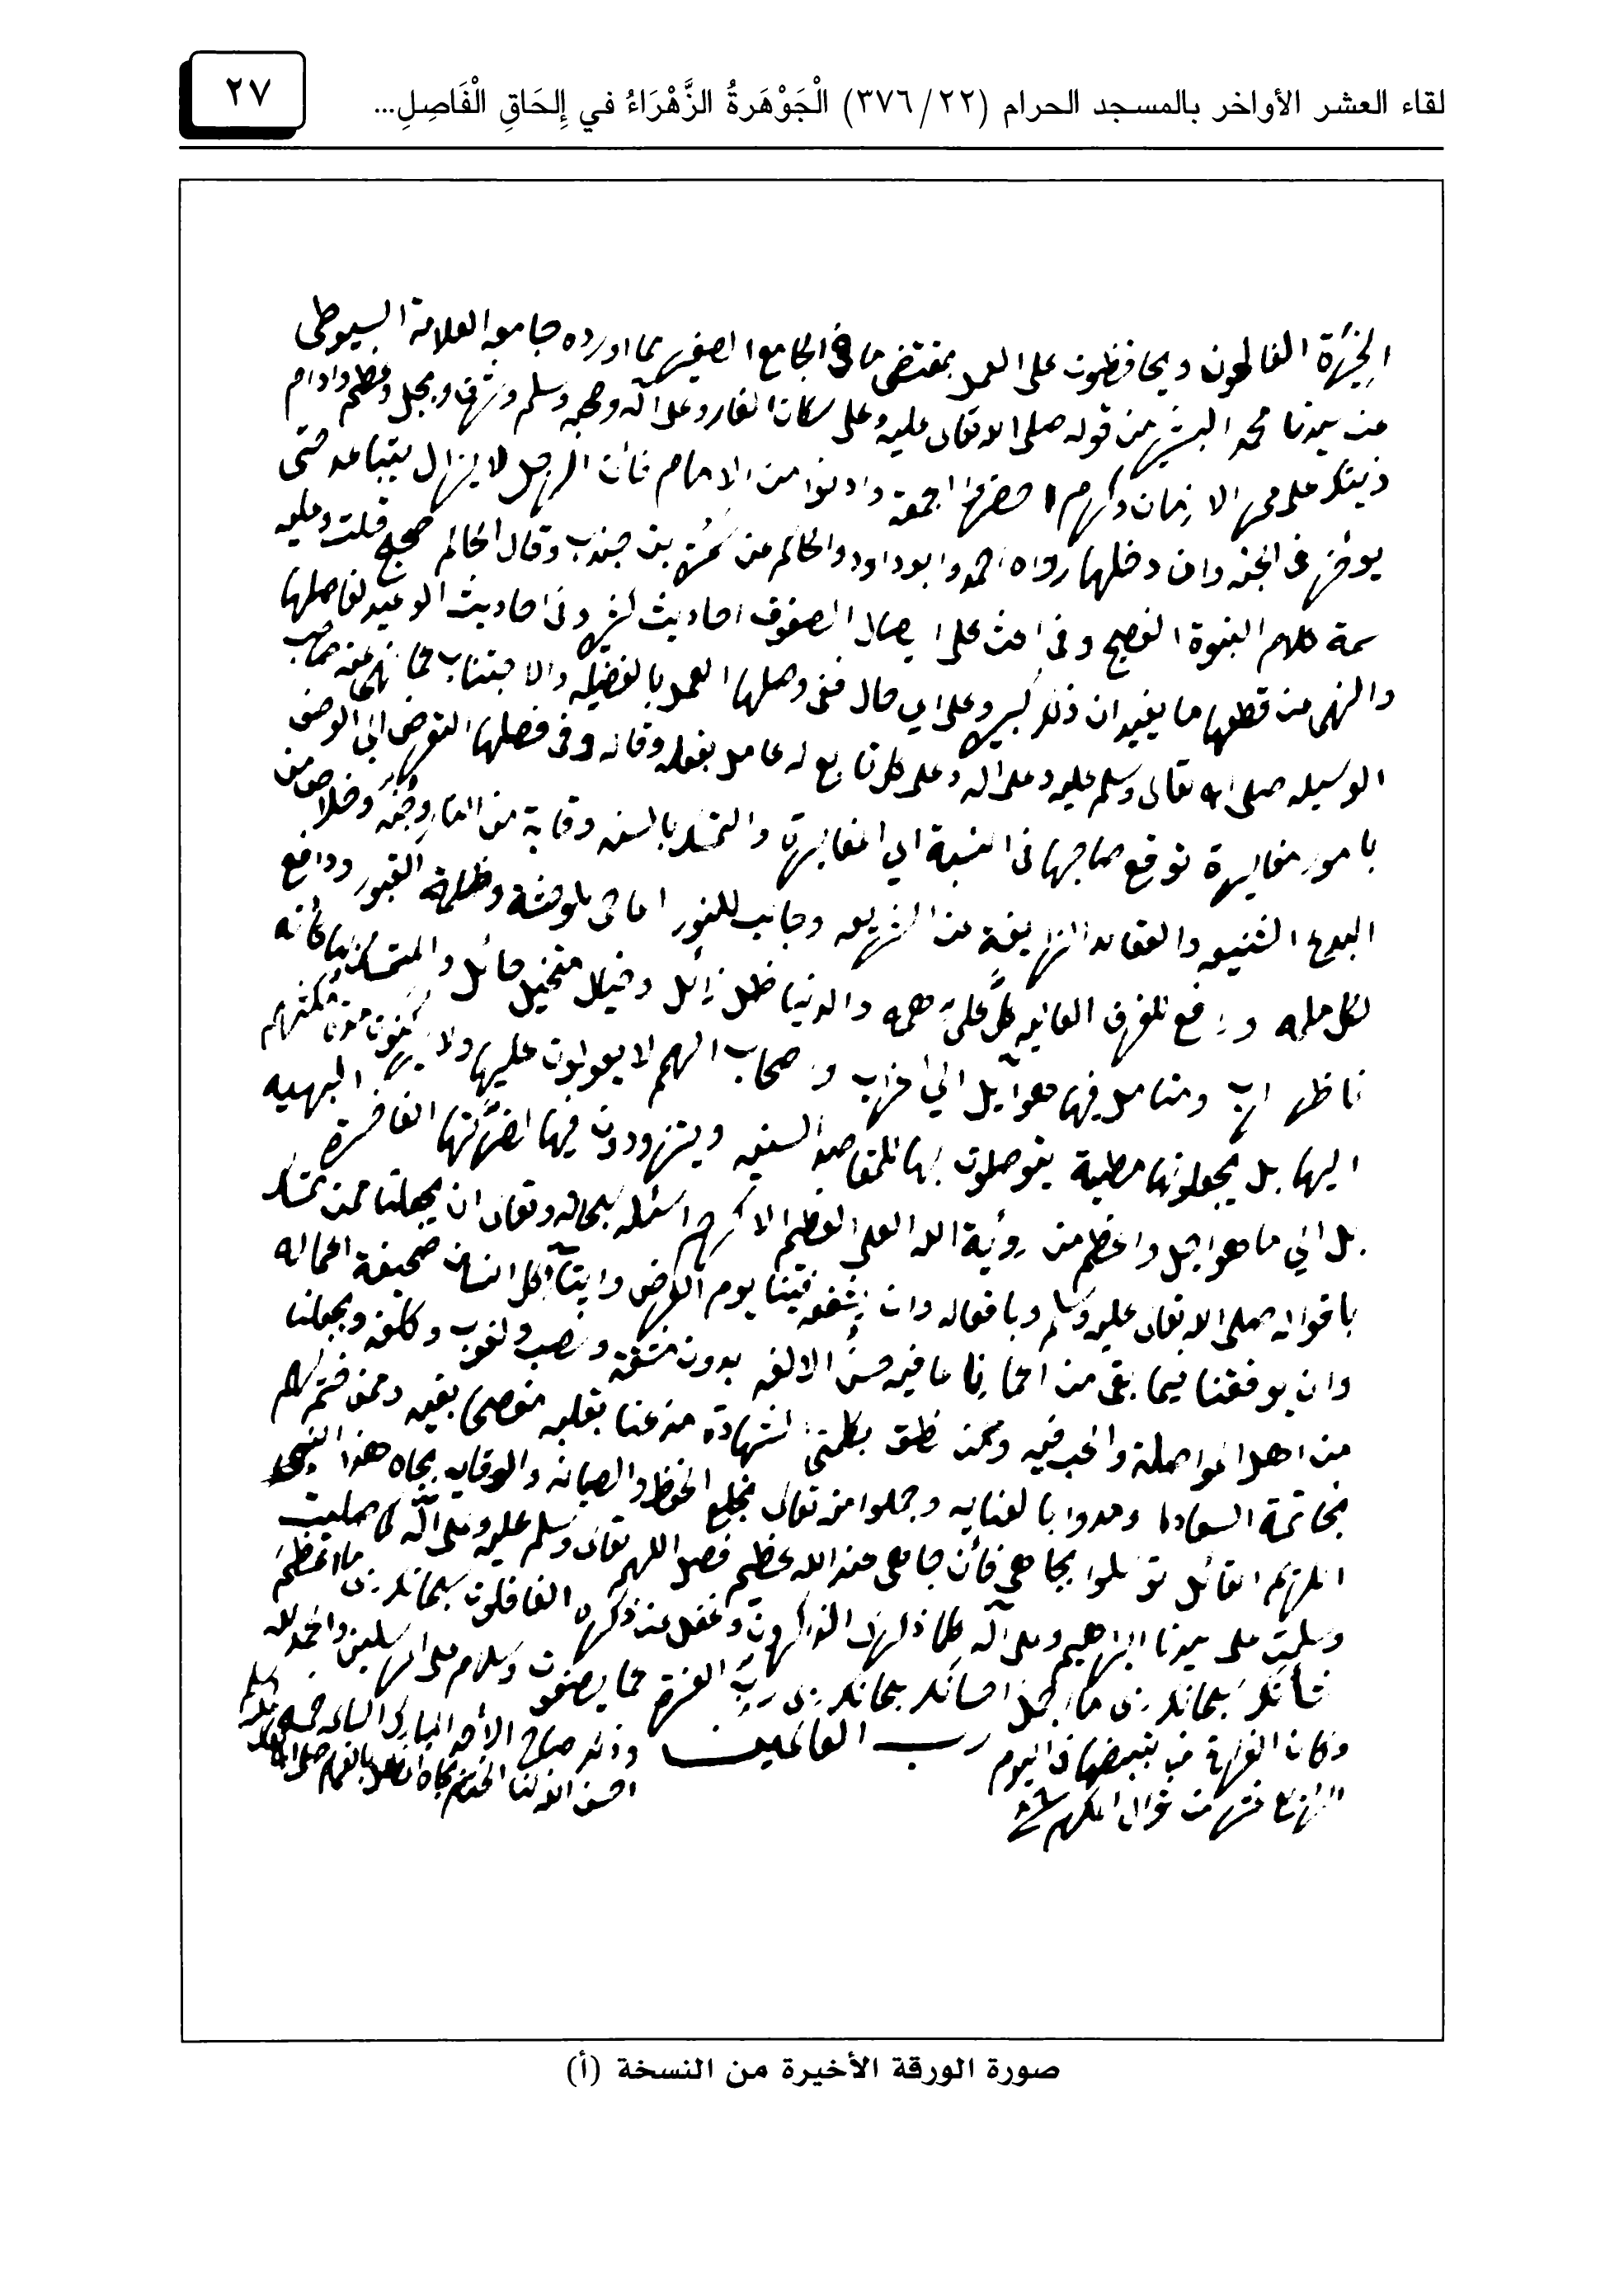 لقاء العشر الأواخر بالمسجد الحرام (٣٧٦/٢٢) الْجَوْهَرةُ الزَّهْرَاءُ في إِلحَاقِ الْفَاصِلِ...
٢٧
الفالحون ويحافظون على العمل بمقتضى ما في الجامع الصغير مما اورده جامعه العلامة السيوطي
عن سيدنا محمد البشير من قوله صلى الله تعالى عليه وعلى وعلى آله وصحبه وسلم وشرف وبجل وعظم وادام
ذلك على ممر الازمان وكرم احضروا الجمعة وادنوا من الامام فأن الرجل لا يزال يتباعد حتى
يوخر في الجنه وان دخلها رواه احمد وابو داود والحاكم عن سمرة بن جندب وقال الحاكم صحيح قلت وعليه
سمة كلام النبوة الفصيح وفي الحث على ايصال الصفوف احاديث كثيره وفي احاديث الوعيد لفاصلها
والنهي من قطعها ما يفيد ان ذلك كبيره وعلى اي حال ففي وصلها العمل بالفضيله والاجتناب مما نهى عنه صاحب
الوسيله صلى الله تعالى وسلم عليه وعلى اله وعلى كل تابع له عامل بقوله وقاله وفي فصلها التعرض الى الوصف
بامور مغايرة توقع صاحبها في النسبة الى المغايرة والتمسك بالسنه وقاية من النار وجنه وخلاص من
البدع الشنيعه والعقائد الزايغة عن الشريعه وجالب للنور اماحي لوحشة وظلمة القبور ودافع
لكل ملمه ورافع للغرف العاليه كل على همه والدنيا ظل زائل وخيال متخيل حائل والمتمسك بها كأنه
ناظر ومتامل فيها هو آيل الى خراب واصحاب الهمم لا يعولون عليها ولا
اليها بل يجعلونها مطية يتوصلون بها للمقاصد السنيه ويتزودون فيها لضرتها الفاخرة البهيه
بل الى ما هو اجل واعظم من رؤية الله العلي العظيم الاكرم اسئله سبحانه وتعالى ان يجعلنا ممن تمسك
باقواله صلى الله تعالى عليه وسلم وبافعاله وان يشفعه فينا يوم العرض وايتاء كل انسان صحيفة اعماله
وان يوفقنا فيما بقى من اعمارنا عافيه حسن الالفه بدون مشقة ونصب ولغوب وكلفه ويجعلنا
من اهل المواصلة والحب فيه وممن نطق بكلمتي الشهادة مذعنا بقلبه مفصحا بفيه وممن ختم لهم
بخاتمة السعاده ومدوا بالعنايه وجملوا منه تعالى بخلع الحفظ والصيانه والوقايه بجاه هذا النبي
القائل توسلوا بجاهي فأن جاهي عند الله عظيم فصل اللهم تعالى وسلم عليه وعلى آله كما صليت
وسلمت على سيدنا ابراهيم وعلى آله كلما ذكرك الذاكرون وغفل عن ذكره الغافلون سبحانك ربي ما اعظم
شأنك سبحانك ربي ما اجمل احسانك سبحانك ربي رب العزة عما يصفون وسلام على المرسلين والحمد لله
رب العالمين
وكان الفراغ من تبييضها في اليوم
وذلك صباح الأحد المبارك
صورة الورقة الأخيرة من النسخة (أ)